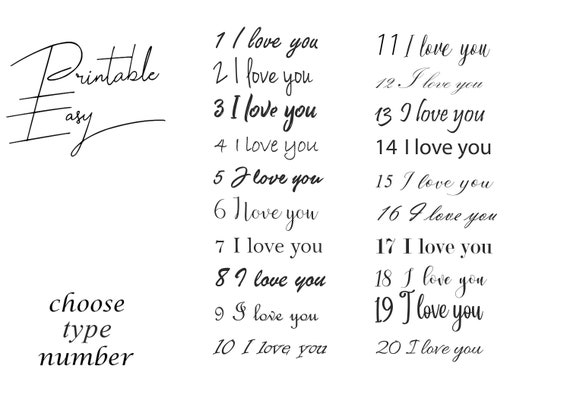 Printable
Easy
choose
type
number
1 I love you
2 I love you
3 I love you
4 I love you
5 I love you
6 I love you
7 I love you
8 I love you
9 I love you
10 I love you
11 I love you
12 I love you
13 I love you
14 I love you
15 I love you
16 I love you
17 I love you
18 I love you
19 I love you
20 I love you